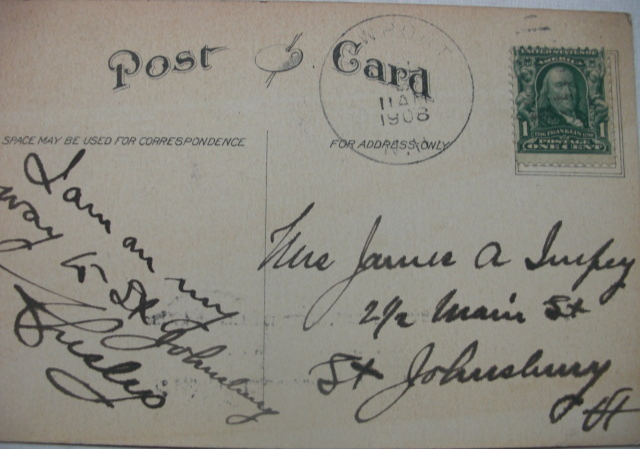 Post Card
11 AM
1908
SPACE MAY BE USED FOR CORRESPONDENCE
FOR ADDRESS ONLY
AMERICA
1 1
FRANKLIN
POSTAGE
ONE CENT
I am on my
way to St Johnsbury
Mrs James A Impey
2½ Main St
St Johnsbury
Vt